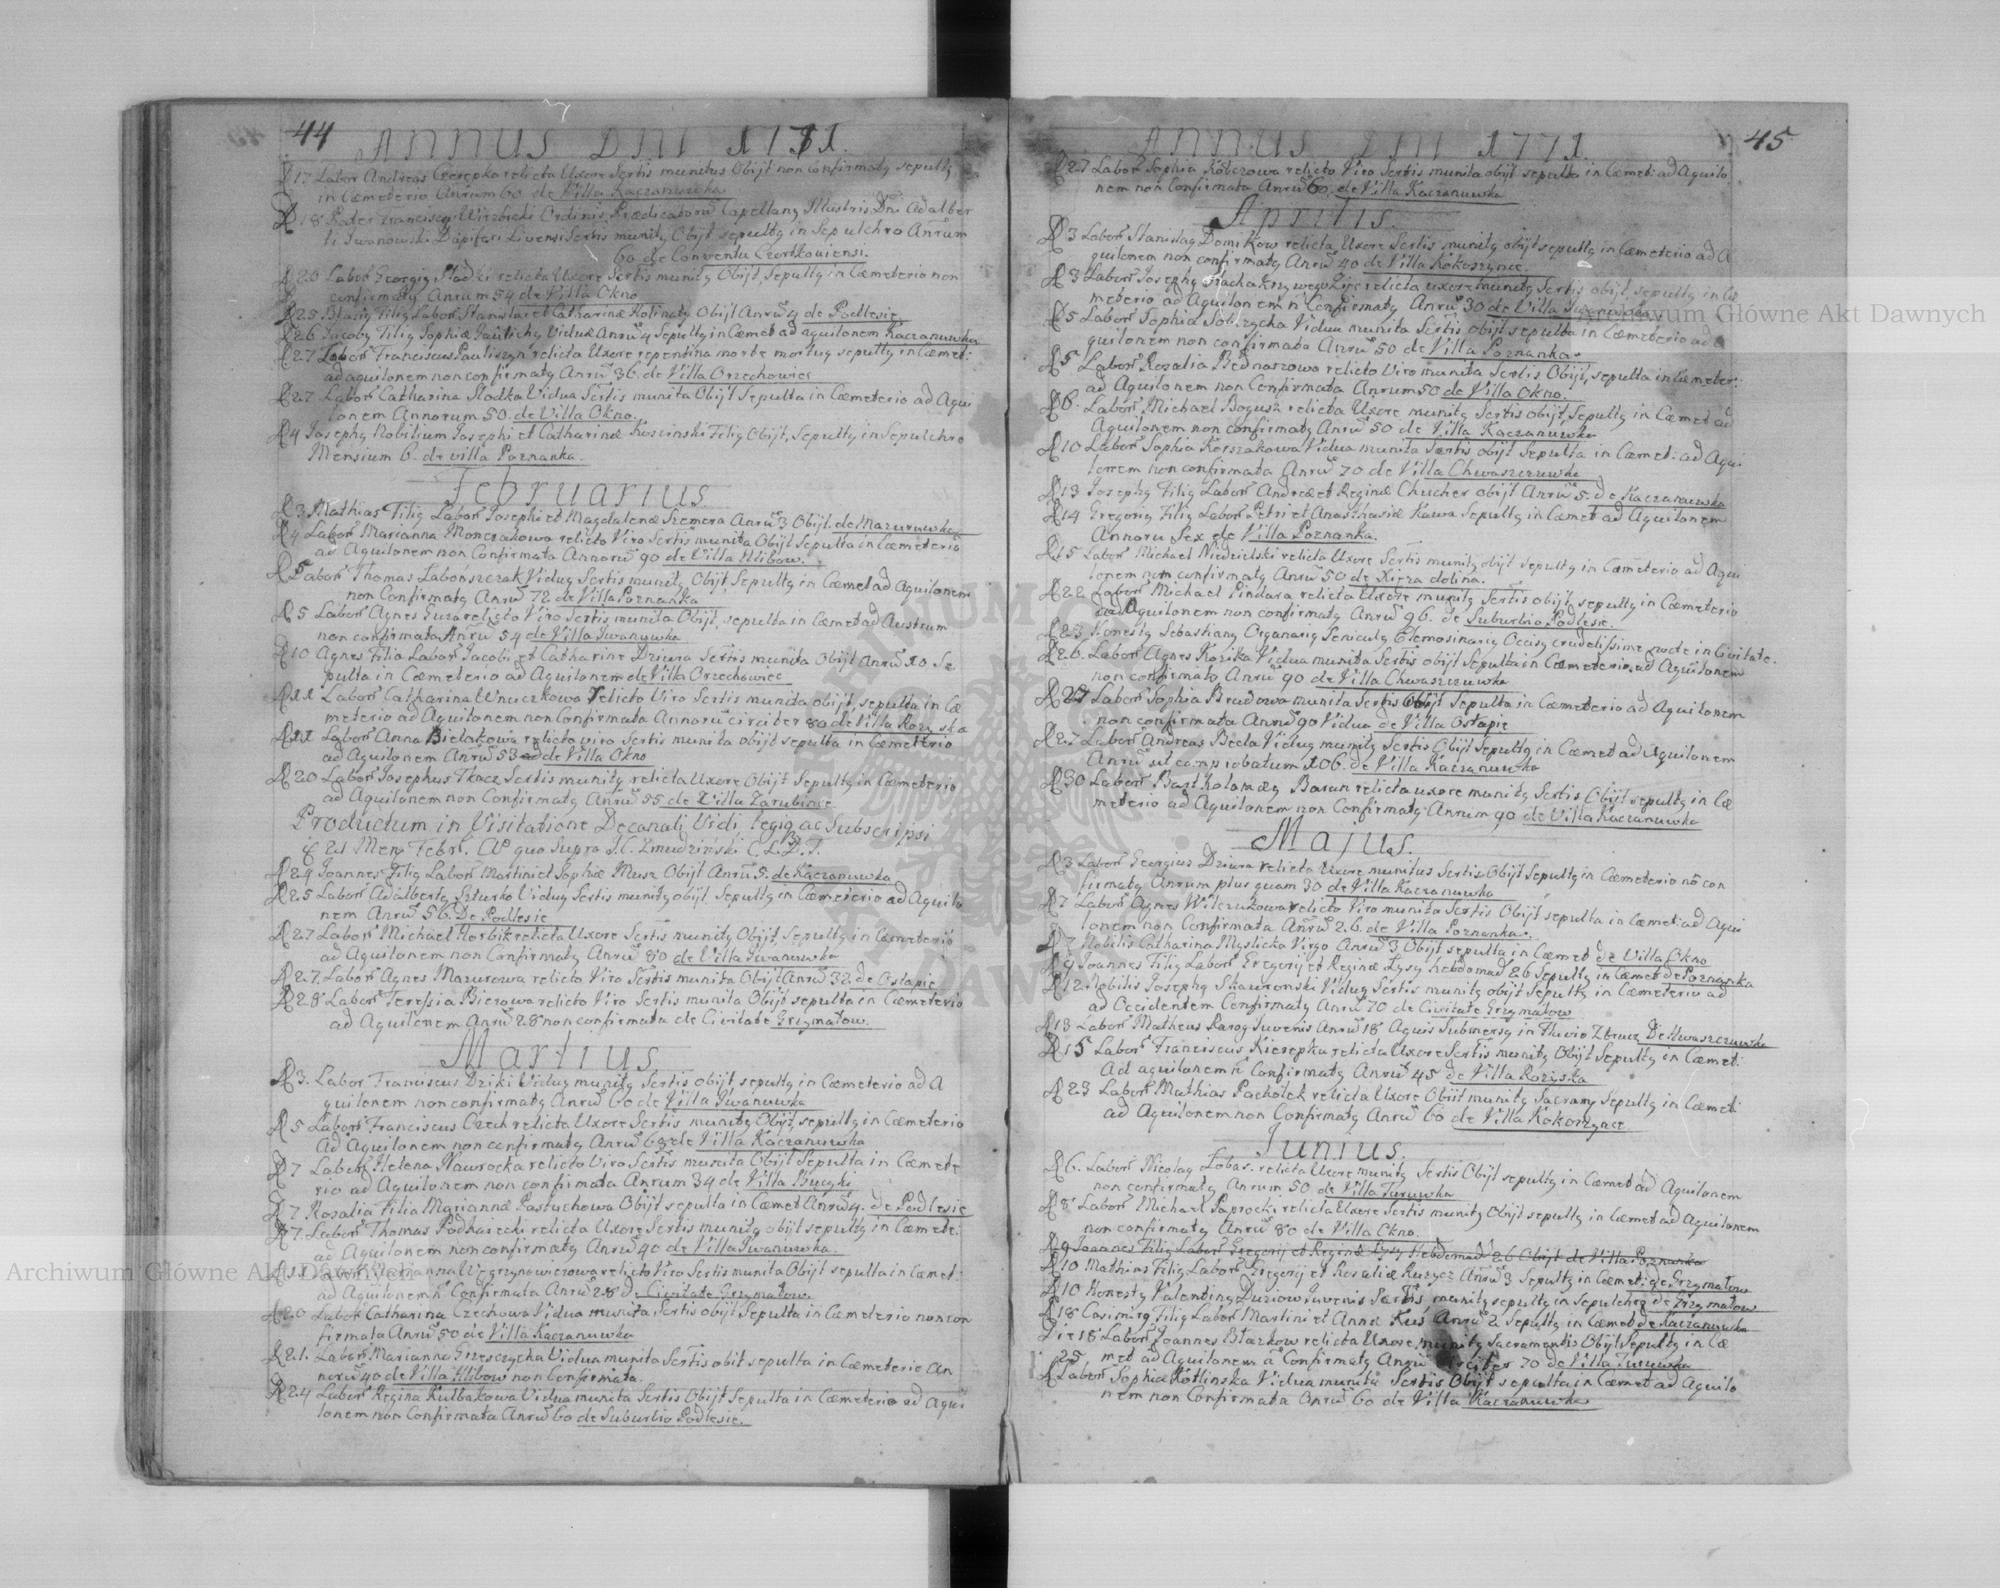 44 ANNUS DNI 1771.
17 Labor Andreas Czerepka relicta Uxore Sertis munitus Obijt non confirmatq sepultq
in Cæmeterio Anrum 60 de Villa Kaczanuwka
R 18 Pater Franciscq Wierzbicki Ordinis Prædicatorũ Capellanq Illustris Dni Adalber
ti Iwanowski Dapiferi Livensi Sertis munitq Obijt sepultq in Sepulchro Anrum
60 de Conventu Czortkoviensi.
R 20 Labor Georgiq Sladki relicta Uxore Sertis munitq Obijt, Sepultq in Cæmeterio non
confirmatq Anrum 54 de Villa Okno
R 25 Blasiq Filiq Labor Stanislai et Catharinæ Kolinaty Obijt Anrũ 4 de Podlesie
R 26 Jacobq Filiq Sophiæ Paulichy Viduæ Anrũ 4 Sepultq in Cæmet ad aquilonem Kaczanuwka
R 27 Labor Franciscus Pauliszyn relicta Uxore repentina morte mortuq sepultq in Cæmet:
ad aquilonem non confirmatq Anrũ 36. de Villa Orzechowiec
R 27 Labor Catharina Slodka Vidua Sertis munita Obijt Sepulta in Cæmeterio ad Aqui
lonem Annorum 50. de Villa Okno.
R 4 Josephq Nobilium Josephi et Catharinæ Koscinski Filiq Obijt, Sepultq in Sepulchro
Mensium 6. de villa Poznanka.
Februarius
R 3 Mathias Filiq Labor Josephi et Magdalenæ Szemera Anrũ 3 Obijt. de Mazuruwka
R 4 Labor Marianna Monczakowa relicto Viro Sertis munita Obijt Sepulta in Cæmeterio
ad Aquilonem non Confirmata Annorũ 90 de Villa Hlibow.
R 5 Labor Thomas Labonszczak Viduq Sertis munitq Obijt, Sepultq in Cæmet ad Aquilonem
non Confirmatq Anrũ 72 de Villa Poznanka
R 5 Labor Agnes Guza relicto Viro Sertis munita Obijt, sepulta in Cæmet ad Austrum
non confirmata Anrũ 54 de Villa Iwanuwka
R 10 Agnes Filia Labor Jacobi et Catharinæ Dziura Sertis munita Obijt Anrũ 20 Se
pulta in Cæmeterio ad Aquilonem de Villa Orzechowiec
R 11 Labor Catharina Wnuczkowa relicto Viro Sertis munita obijt, sepulta in Cæ
meterio ad Aquilonem non Confirmata Annorũ circiter 80 de Villa Rozyska
R 11 Labor Anna Bielakowa relicto viro Sertis munita obijt sepulta in Cæmeterio
ad Aquilonem Anrũ 53 de Villa Okno
R 20 Labor Josephus Tkacz Sertis munitq relicta Uxore Obijt Sepultq in Cæmeterio
ad Aquilonem non Confirmatq Anrũ 55 de Villa Zarubince
Productum in Visitatione Decanali Vidi, legi, ac Subscripsi
21 Men: Febr. Ao quo supra
R 24 Joannes Filiq Labor Martini et Sophiæ Musz Obijt Anrũ 5. de Kaczanuwka
R 25 Labor Adalbertq Szturko Viduq Sertis munitq obijt Sepultq in Cæmeterio ad Aquilo
nem Anrũ 56. De Podlesie
R 27 Labor Michael Horbik relicta Uxore Sertis munitq Obijt, Sepultq in Cæmeterio
ad Aquilonem non Confirmatq Anrũ 80 de Villa Iwanuwka
R 27. Labor Agnes Mazurowa relicto Viro Sertis munita Obijt Anrũ 32. de Ostapie
R 28 Labor Teressia Bierowa relicto Viro Sertis munita Obijt sepulta in Cæmeterio
ad Aquilonem Anrũ 28 non confirmata de Civitate Grzymałow.
Martius
R 3. Labor Franciscus Dziki Viduq munitq Sertis obijt sepultq in Cæmeterio ad A
quilonem non confirmatq Anrũ 60 de Villa Iwanuwka
R 5 Labor Franciscus Czech relicta Uxore Sertis munitq Obijt, sepultq in Cæmeterio
Ad Aquilonem non confirmatq Anrũ de Villa Kaczanuwka
R 7 Labor Helena Nawrocka relicto Viro Sertis munita Obijt Sepulta in Cæmete
rio ad Aquilonem non confirmata Anrum 34 de Villa Bucyki
R 7 Rosalia Filia Mariannæ Pastuchowa Obijt sepulta in Cæmet Anrũ 4. de Podlesie
R 7. Labor Thomas Podhaiecki relicta Uxore Sertis munitq obijt sepultq in Cæmete:
ad Aquilonem non confirmatq Anrũ 40 de Villa Iwanuwka.
Labor Marianna Węgrzynowiczowa relicto Viro Sertis munita Obijt sepulta in Cæmet:
ad Aquilonem ñ Confirmata Anrũ 28 de Civitate Grzymałow
R 20 Labor Catharina Czechowa Vidua munita Sertis obijt Sepulta in Cæmeterio non con
firmata Anrũ 50 de Villa Kaczanuwka
R 21. Labor Marianna Grzesczycha Vidua munita Sertis obit sepulta in Cæmeterio An
norũ 40 de Villa Hlibow non Confirmata.
R 24 Labor Regina Kulbakowa Vidua munita Sertis Obijt Sepulta in Cæmeterio ad Aqui
lonem non Confirmata Anrũ 60 de Suburbio Podlesie.
ANNUS DNI 1771. 45
R 27 Labor Sophia Kolczowa relicto Viro Sertis munita obijt sepulta in Cæmet: ad Aquilo
nem non Confirmata Anrũ 60. de Villa Kaczanuwka
Aprilis.
R 3 Labor Stanislaq Domikow relicta Uxore Sertis munitq obijt sepultq in Cæmeterio ad A
quilonem non confirmatq Anrũ 40 de Villa Kokoszynce.
R 3 Labor Josephq relicta uxore munitq Sertis obijt, sepultq in Cæ
meterio ad Aquilonem ñ Confirmatq Anrũ 30 de Villa
R 5 Labor Sophia Sobczycha Vidua munita Sertis obijt sepulta in Cæmeterio ad A
quilonem non confirmata Anrũ 50 de Villa Poznanka
R 5 Labor Rosalia Bednaszowa relicto Viro munita Sertis Obijt, sepulta in Cæmeter:
ad Aquilonem non Confirmata Anrum 50 de Villa Okno.
R 6. Labor Michael Bogusz relicta Uxore munitq Sertis obijt, Sepultq in Cæmet ad
Aquilonem non confirmatq Anrũ 50 de Villa Kaczanuwka
R 10 Labor Sophia Korszakowa Vidua munita Sertis obijt Sepulta in Cæmet: ad Aqui
lonem non confirmata Anrũ 70 de Villa Chwaszczuwka
R 13 Josephq Filiq Labor Andreæ et Reginæ Chucher obijt Anrũ 5. de Kaczanuwka
R 14 Gregoriq Filiq Labor Petri et Anasthasiæ Kawa Sepultq in Cæmet ad Aquilonem
Annorũ Sex de Villa Poznanka.
R 15 Labor Michael Niedzielski relicta Uxore Sertis munitq obijt sepultq in Cæmeterio ad Aqui
lonem non confirmatq Anrũ 50 de Zicza dolina.
R 22 Labor Michael Pindura relicta Uxore munitq Sertis obijt, sepultq in Cæmeterio
ad Aquilonem non confirmatq Anrũ 96. de Suburbio Podlesie.
R 23 Honestq Sebastianq Organariq Seniculq Elemosinariq Occisq crudelissime nocte in Civitate.
R 26. Labor Agnes Kozika Vidua munita Sertis obijt Sepulta in Cæmeterio ad Aquilonem
non confirmata Anrũ 90 de Villa Chwaszczuwka
R 27 Labor Sophia Brudowa munita Sertis Obijt Sepulta in Cæmeterio ad Aquilonem
non confirmata Anrũ 90 Vidua de Villa Ostapie
R 27 Labor Andreas Becla Viduq munitq Sertis Obijt Sepultq in Cæmet ad Aquilonem
Anrũ ut comprobatum 106. de Villa Kaczanuwka
R 30 Labor Bartholomæq Baran relicta uxore munitq Sertis Obijt sepultq in Cæ
meterio ad Aquilonem non Confirmatq Anrum 90 de Villa Kaczanuwka
Majus.
R 3 Labor Georgius Dziura relicta Uxore munitus Sertis Obijt Sepultq in Cæmeterio nõ con
firmatq Anrum plus quam 30 de Villa Kaczanuwka
R 7 Labor Agnes Wilczukowa relicto Viro munita Sertis Obijt sepulta in Cæmet: ad Aqui
lonem non Confirmata Anrũ 26. de Villa Poznanka.
R 7 Nobilis Catharina Myslicka Virgo Anrũ 3 Obijt sepulta in Cæmet de Villa Okno
R 9 Joannes Filiq Labor Gregorij et Reginæ Lysy hebdomad 26 Sepultq in Cæmet de Poznanka
R 12 Nobilis Josephq Skawronski Viduq Sertis munitq obijt Sepultq in Cæmeterio ad
ad Occidentem Confirmatq Anrũ 70 de Civitate Grzymałow
R 13 Labor Matheus Rarog Iuvenis Anrũ 18 Aquis Submersq in Fluvio Zbrucz De Hwaszczuwka
R 15 Labor Franciscus Kierepka relicta Uxore Sertis munitq Obijt Sepultq in Cæmet:
Ad aquilonem ñ Confirmatq Anrũ 45 de Villa Rozyska
R 23 Labor Mathias Pacholek relicta Uxore Obijt munitq Sacramq Sepultq in Cæmet:
ad Aquilonem non Confirmatq Anrũ 60 de Villa Kokoszynce
Junius.
R 6. Labor Nicolaq Lobas. relicta Uxore munitq Sertis Obijt sepultq in Cæmet ad Aquilonem
non confirmatq Anrum 50 de Villa Turuwka
R 8 Labor Michael Paprocki relicta Uxore Sertis munitq Obijt sepultq in Cæmet ad Aquilonem
non confirmatq Anrũ 80 de Villa Okno.
R 9 Joannes Filiq Labor Gregorij et Reginæ Lysy Hebdomad 26 Obijt de Villa Poznanka
R 10 Mathias Filiq Labor Gregorij et Rosaliæ Ruzycz Anrũ 3 Sepultq in Cæmet: de Grzymałow
R 10 Honestq Valentinq Duziow Iuvenis Sertis munitq sepultq in Sepulchro de Grzymałow
R 18 Casimirq Filiq Labor Martini et Annæ Kuś Anrũ 2 Sepultq in Cæmet de Kaczanuwka
Die 18 Labor Joannes Błazkow relicta Uxore munitq Sacramentis Obijt Sepultq in Cæ
met ad Aquilonem ñ Confirmatq Anrũ circiter 70 de Villa Turuwka
25
R Labor Sophia Kotlinska Vidua munita Sertis Obijt sepulta in Cæmet ad Aquilo
nem non Confirmata Anrũ 60 de Villa Kaczanuwka
Archiwum Główne Akt Dawnych
Archiwum Główne Akt Dawnych
ARCHIWUM GŁÓWNE AKT DAWNYCH